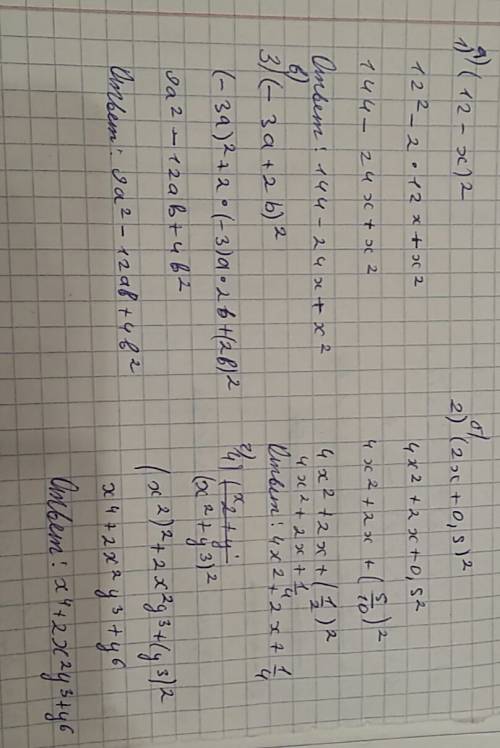 а)
1) (12-x)²
12²-2·12x+x²
144-24x+x²
Ответ: 144-24x+x²
в)
3) (-3a+2b)²
(-3a)²+2·(-3)a·2b+(2b)²
9a²-12ab+4b²
Ответ: 9a²-12ab+4b²
б)
2) (2x+0,5)²
4x²+2x+0,5²
4x²+2x+(5/10)²
4x²+2x+(1/2)²
4x²+2x+1/4
Ответ: 4x²+2x+1/4
г)
4)
(x²+y³)²
(x²)²+2x²y³+(y³)²
x⁴+2x²y³+y⁶
Ответ: x⁴+2x²y³+y⁶